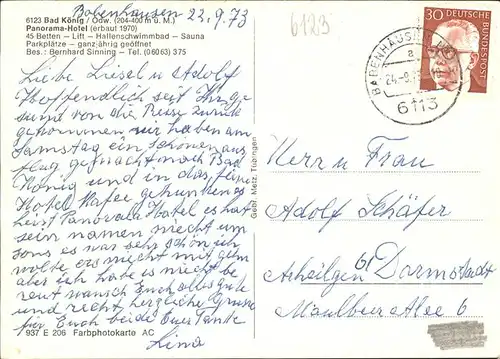 Babenhausen 22.9.73
6123 Bad König / Odw. (204-400 m ü. M.)
Panorama-Hotel (erbaut 1970)
45 Betten – Lift – Hallenschwimmbad – Sauna
Parkplätze – ganzjährig geöffnet
Bes.: Bernhard Sinning – Tel. (06063) 375
Liebe Liesel u Adolf
Hoffendlich seit Ihr ge-
sund von die Reise zurück
gekommen, wir haben am
Samstag ein schönen aus
flug gemacht nach Bad
König und in das feine
Hotel Kafee getrunken es
heist Panorama Hotel es hat
sein namen nicht um
sons es war sehr schön ich
wolte ers nicht mit gehn
aber ich habe es nicht be
reut wünsch Euch alles gute
und recht herzliche Grüsse
für Euch beide Eure Tante
Lina
937 E 206 Farbphotokarte AC
Gebr. Metz, Tübingen
6123
30
DEUTSCHE
BUNDESPOST
BABENHAUSEN
a
6113
Herrn u Frau
Adolf Schäfer
61
Arheilgen Darmstadt
Maulbeer Alee 6